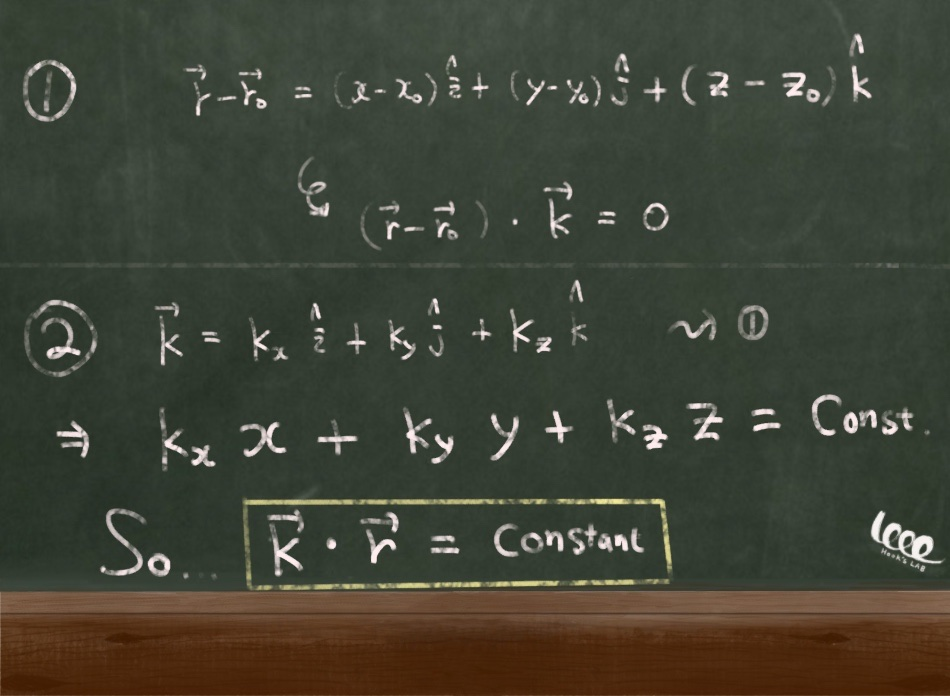 ① r⃗ − r⃗₀ = (x − x₀) î + (y − y₀) ĵ + (z − z₀) k̂
(r⃗ − r⃗₀) · k⃗ = 0
② k⃗ = kₓ î + k_y ĵ + k_z k̂ ⇝ ①
⇒ kₓ x + k_y y + k_z z = Const.
So... k⃗ · r⃗ = Constant
Hook's LAB